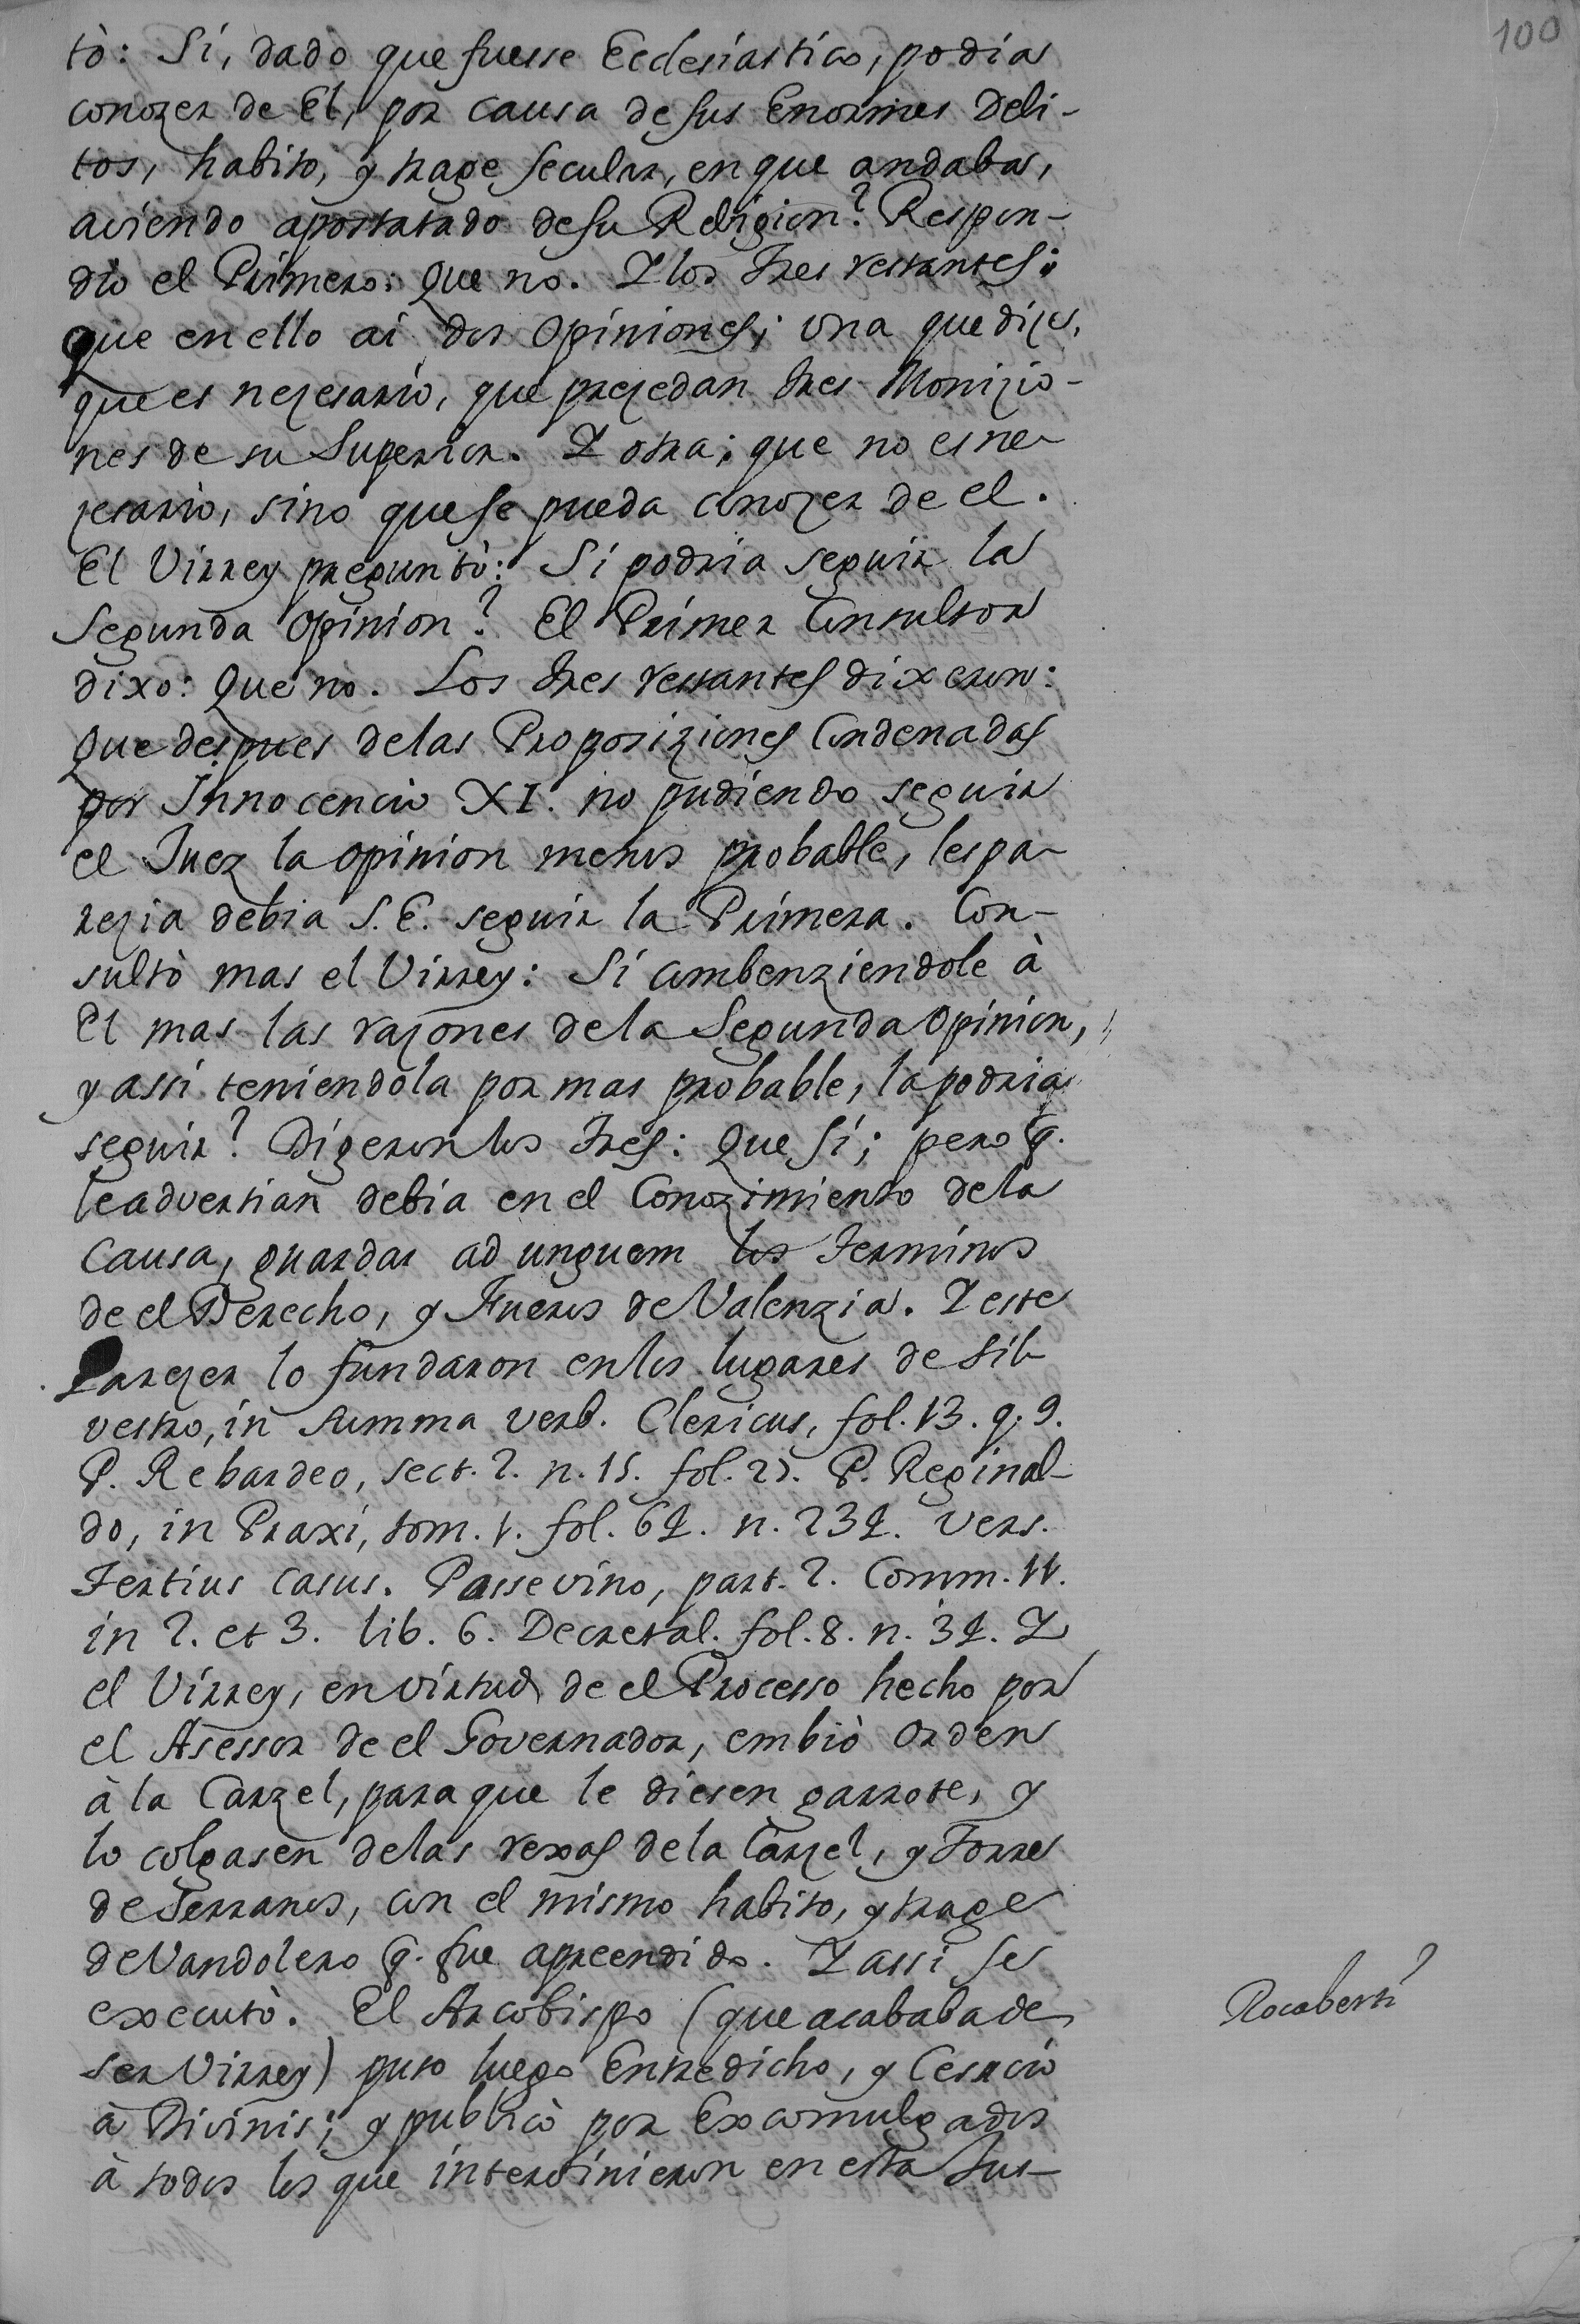 100
tò: Si, dado que fuesse Ecclesiastico, podia
conozer de El, por causa de sus Enormes Deli-
tos, habito, y trage secular, en que andaba,
aviendo apostatado de su Religion? Respon-
dio el Primero: Que no. Y los tres restantes:
Que en ello ai dos Opiniones; una que dize,
que es nezesario, que prezedan tres Monizio-
nes de su Superior. Y otra; que no es ne-
zesario, sino que se pueda conozer de el.
El Virrey preguntò: Si podria seguir la
Segunda Opinion? El Primer Consultor
dixo: Que no. Los tres restantes dixeron:
Que despues de las Proposiziones Condenadas
por Innocencio XI. no pudiendo seguir
el Juez la opinion menos probable, les pa-
rezia debia S. E. seguir la Primera. Con-
sultò mas el Virrey: Si combenziendole à
El mas las razones de la Segunda Opinion,
y assi teniendola por mas probable, la podria
seguir? Digeron los tres: Que si; pero q.
le advertian debia en el Conozimiento de la
Causa, guardar ad unguem los Terminos
de el Derecho, y Fueros de Valenzia. Y este
Parezer lo fundaron en los lugares de Sil-
vestro, in Summa verb. Clericus, fol. 13. q. 9.
P. Rebardeo, sect. 2. n. 15. fol. 25. P. Reginal-
do, in Praxi, tom. 1. fol. 64. n. 234. vers.
Tertius casus. Passevino, part. 2. Comm. 11.
in 2. et 3. lib. 6. Decretal. fol. 8. n. 34. Y
el Virrey, en virtud de el Processo hecho por
el Asessor de el Governador, embiò Orden
à la Carzel, para que le diesen garrote, y
lo colgasen de las rexas de la Carzel, y Torre
de Serranos, con el mismo habito, y trage
de Vandolero q. fue apreendido. Y assi se
executò. El Arcobispo (que acababa de
ser Virrey) puso luego Entredicho, y Cesacio
à Divinis; y publicò por Excomulgados
à todos los que intervinieron en esta Jus-
Rocaberti